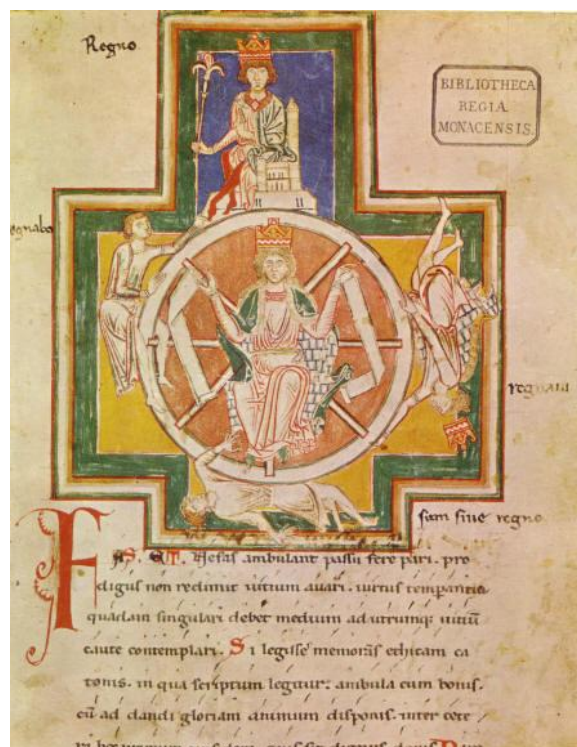 Regno
BIBLIOTHECA
REGIA
MONACENSIS.
egnabo
regnaui
sum sine regno
FAS ET Nefas ambulant passu fere pari. pro
digus non redimit uitium auari. uirtus temperantia
quadam singulari debet medium ad utrumq; uitiũ
caute contemplari. Si legisse memoras ethicam ca
tonis. in qua scriptum legitur. ambula cum bonis.
cũ ad dandi gloriam animum disponis. inter cete